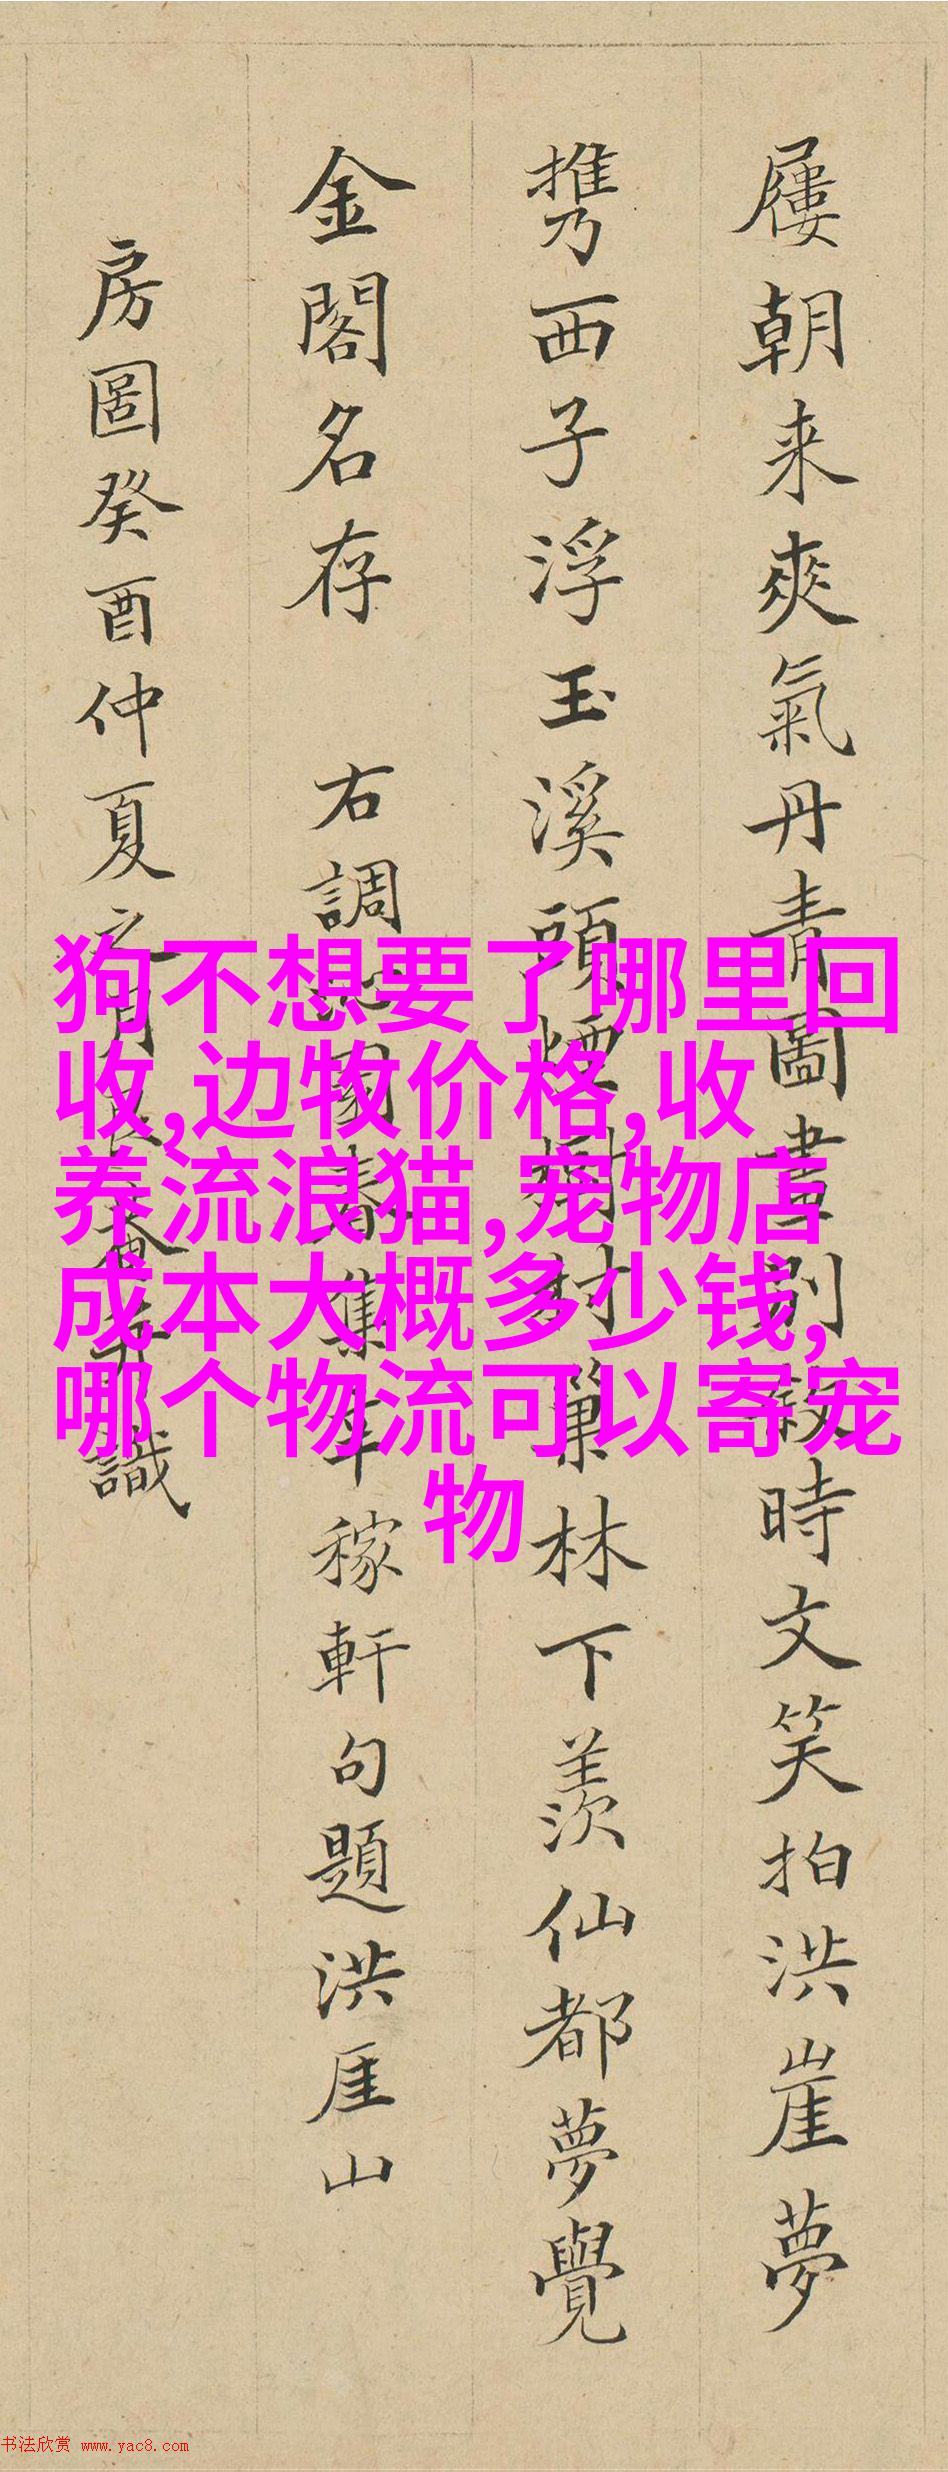 屨朝来爽氣丹青圖畫別敘時文笑拍洪崖夢
攜西子浮玉溪頭煙樹村巢林下羨仙都夢覺
金閣名存 右調
集辛稼軒句題洪厓山
房圖癸酉仲夏之月
識
狗不想要了哪里回
收,边牧价格,收
养流浪猫,宠物店
成本大概多少钱,
哪个物流可以寄宠
物
书法欣赏 www.yac8.com